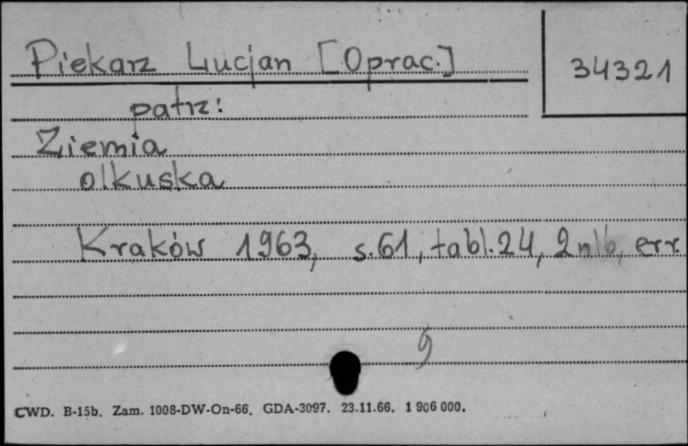 Piekarz Lucjan [Oprac.]
34321
patrz:
Ziemia
olkuska
Kraków 1963, s.61, tabl.24, 2 nlb, err.
9
CWD. B-15b. Zam. 1008-DW-On-66. GDA-3097. 23.11.66. 1 906 000.